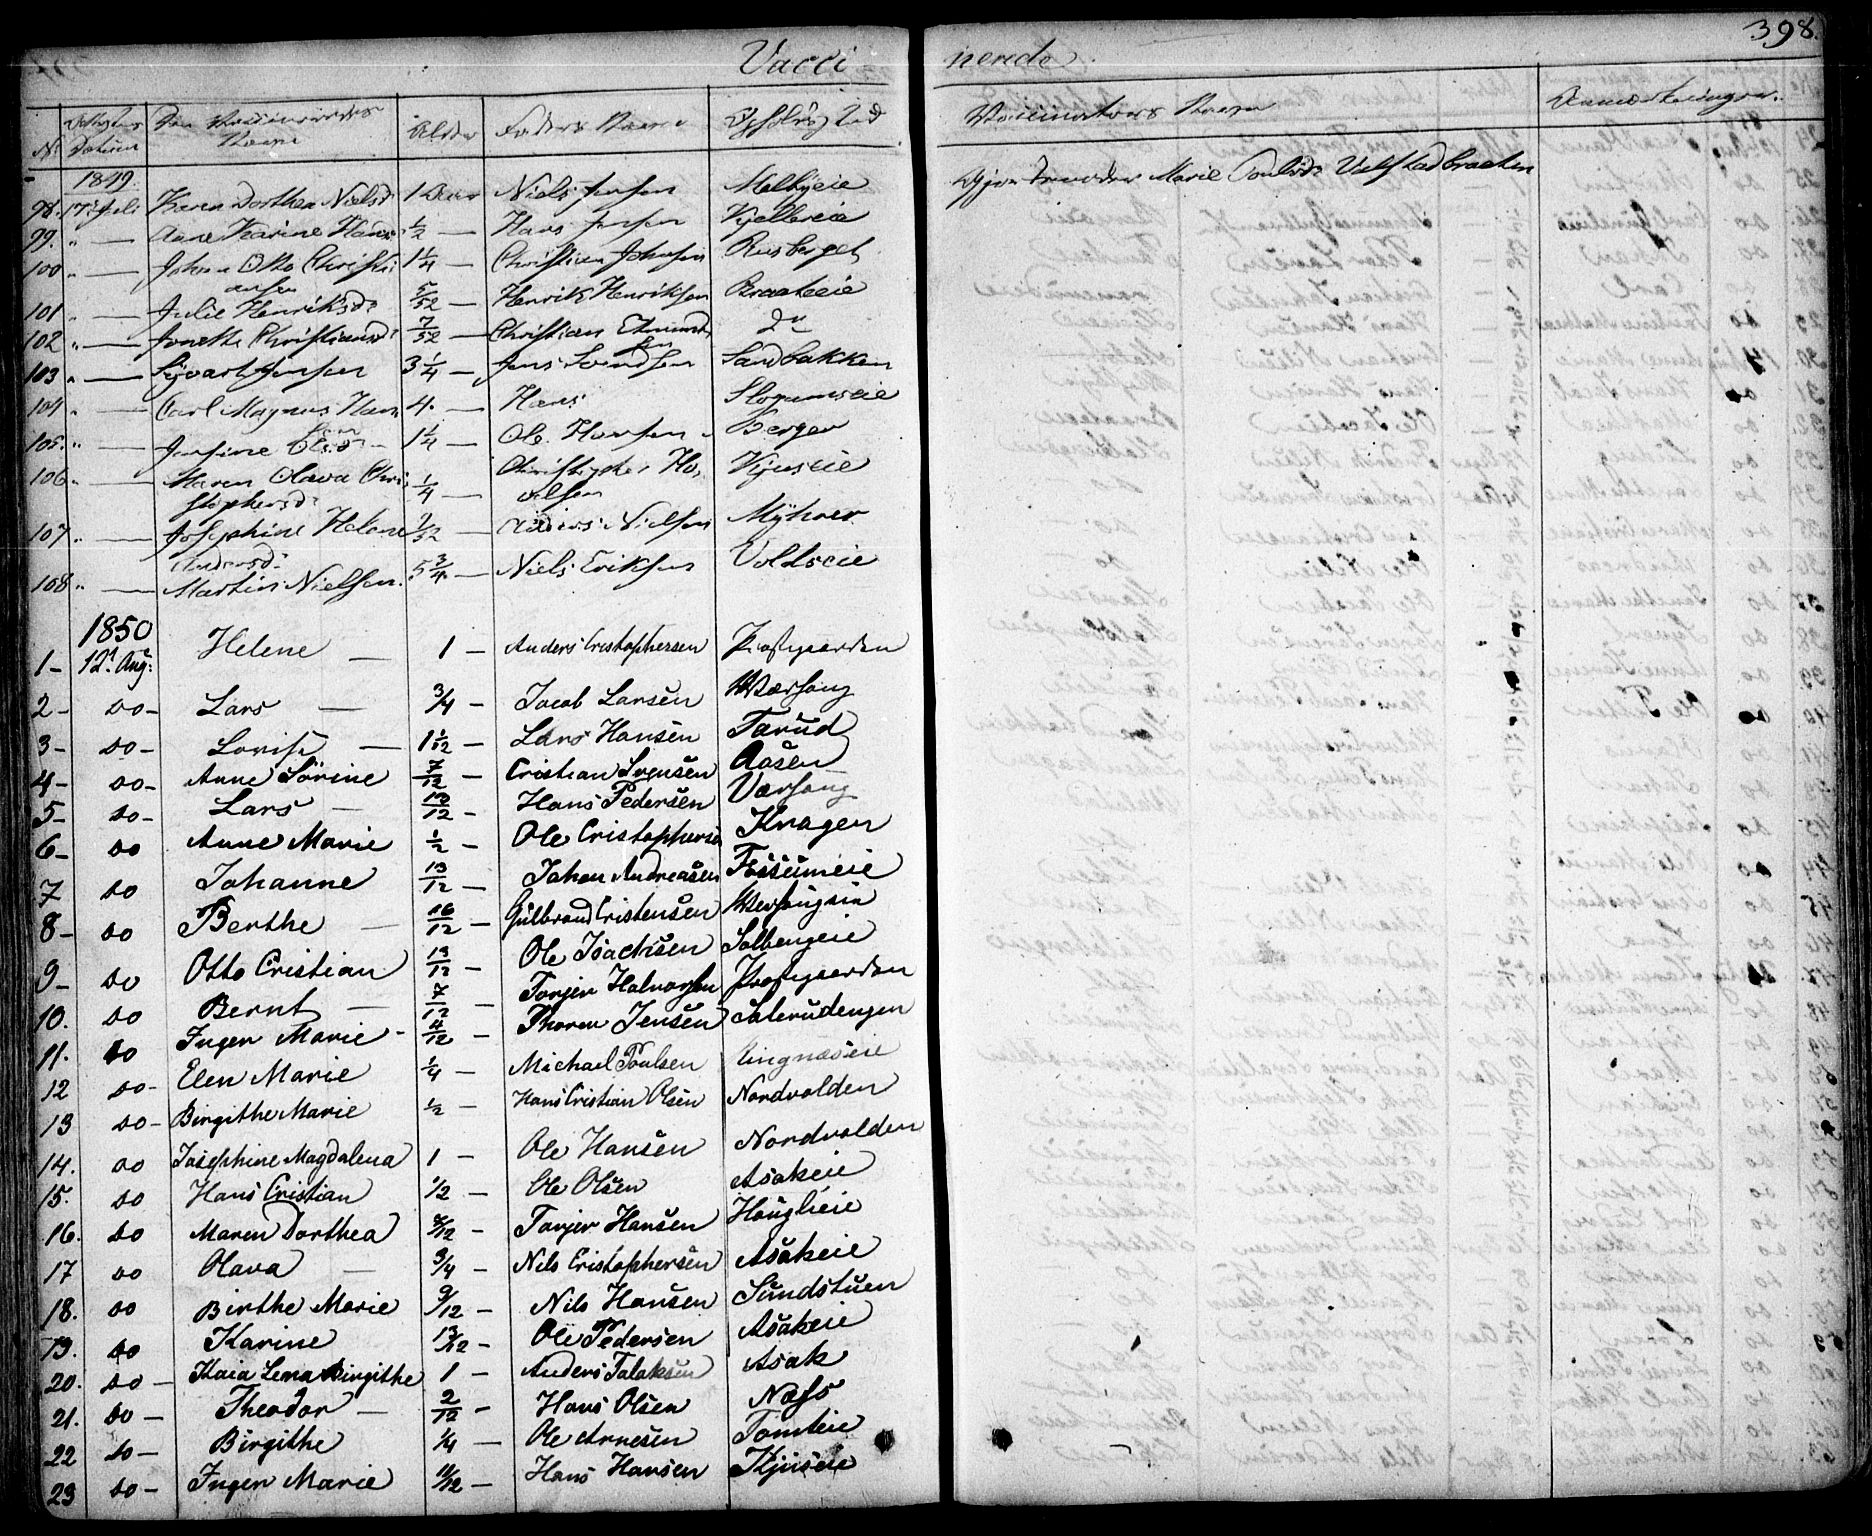 398.
Vacci- nerede.
No Datum Navn Alder Faders Navn Opholds Sted Vaccinators Navn Anmærkninger.
1849.
98. 17de Juli Karen Dorthea Nielsd. 1 Aar Niels Jensen Melbyeie Gjordemoder Marie Poulsdr Velstadbraaten
99. " — Anne Karine Hans ½ — Hans Jensen Kjellereie
100 " — Johan Otto Christi 1¼ — Christian Johnsen Riisberget
ansen
101 " — Julie Henriksdr 5/52 — Henrik Henriksen Braateeie
102 " — Jonette Christiansdr 7/52 — Christian Edmund Do
sen
103 " — Syvart Jensen 3¼ — Jens Svendsen Sandbakken
104 — Carl Magnus Hans 4. — Hans Slorumseie
sen
105. " — Josine Olsdr 1¼ — Ole Hansen Berger
106 " — Maren Olava Chri ¼ — Christopher Ha Kjuseie
stophersd. velsen
107 " — Josephine Helene 9/52 — Anders Nielsen Myhrer
Andersd.
108 " — Martin Nielsen. 5¾ — Niels Eriksen Voldseie
1850
1- 12t Aug: Helene — 1 - Anders Cristophersen Præstgaarden
2- do- Lars — ¾ - Jacob Larsen Værhaug
3- do- Lovise — 1 1/12 - Lars Hansen Tærud
4- do- Anne Sörine 7/12 - Cristian Svensen Aasen
5- do- Lars — 10/12 - Hans Pedersen Værhaug
6- do Anne Marie ½ - Ole Cristophersen Kragen
7 do Johanne 13/12 - Johan Andreasen Fossumeie
8- do Berthe — 16/12 - Gulbrand Cristensen Værhaugeie
9- do Otto Cristian 13/12 - Ole Isachsen Solbergeie
10. do Bernt — 7/12 - Torjer Halvorsen Præstgaarden
11. do Inger Marie - 4/12 - Thoren Jensen Salerudengen
12 do- Elen Marie ¼ - Michael Poulsen Ringnæseie
13 do- Birgithe Marie ½ - Hans Cristian Olsen Nordvolden
14. do Josephine Magdalena 1 - Ole Hansen Nordvolden
15. do Hans Cristian ½ - Ole Olsen Asakeie
16. do Maren Dorthea 8/12 - Torjer Hansen Houglieie
17 do Olava — ¾ - Nils Cristophersen Asakeie
18. do Birthe Marie 9/12 - Nils Hansen Sundstuen
19. do Karine 13/12 - Ole Pedersen Asakeie
20. do - Kaia Lena Birgithe 1 - Anders Talaksen Asak
21. do - Theodor — 2/12 - Hans Olsen Næss
22 do - Birgithe ¼ - Ole Arnesen Tomteie
23 do - Inger Marie 11/12 - Hans Hansen Kjuseie